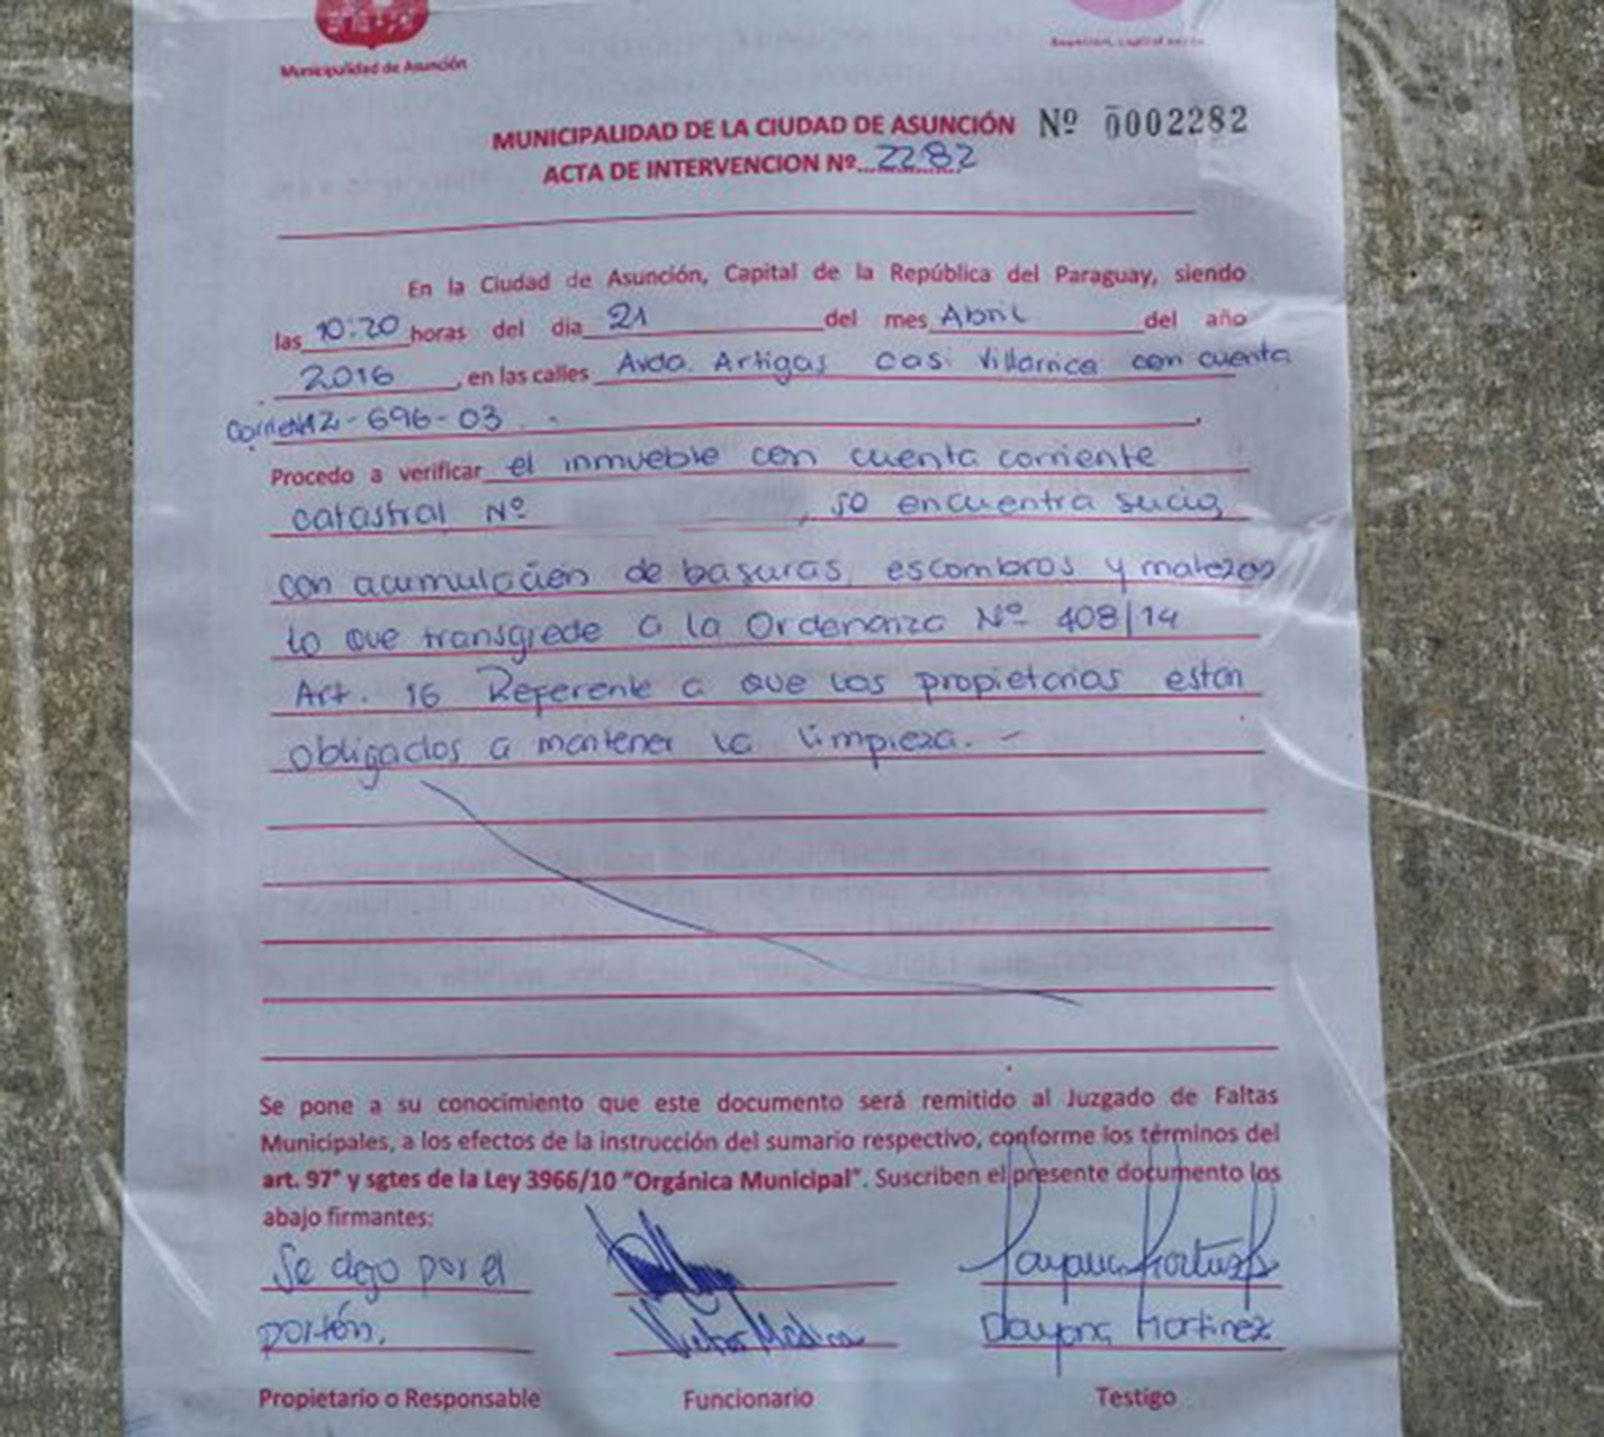 Municipalidad de Asunción
MUNICIPALIDAD DE LA CIUDAD DE ASUNCIÓN Nº 0002282
ACTA DE INTERVENCION Nº 2282
En la Ciudad de Asunción, Capital de la República del Paraguay, siendo
las 10:20 horas del dia 21 del mes Abril del año
2016, en las calles Avda. Artigas casi Villarrica con cuenta
-696-03
Procedo a verificar el inmueble con cuenta corriente
catastral Nº , se encuentra sucio,
con acumulación de basuras, escombros y malezas
lo que transgrede a la Ordenanza Nº 408/14
Art. 16 Referente a que los propietarios estan
obligados a mantener la limpieza. -
Se pone a su conocimiento que este documento será remitido al Juzgado de Faltas
Municipales, a los efectos de la instrucción del sumario respectivo, conforme los términos del
art. 97° y sgtes de la Ley 3966/10 "Orgánica Municipal". Suscriben el presente documento los
abajo firmantes:
Se dejo por el
portón.
Victor
Dayana Martinez
Propietario o Responsable Funcionario Testigo